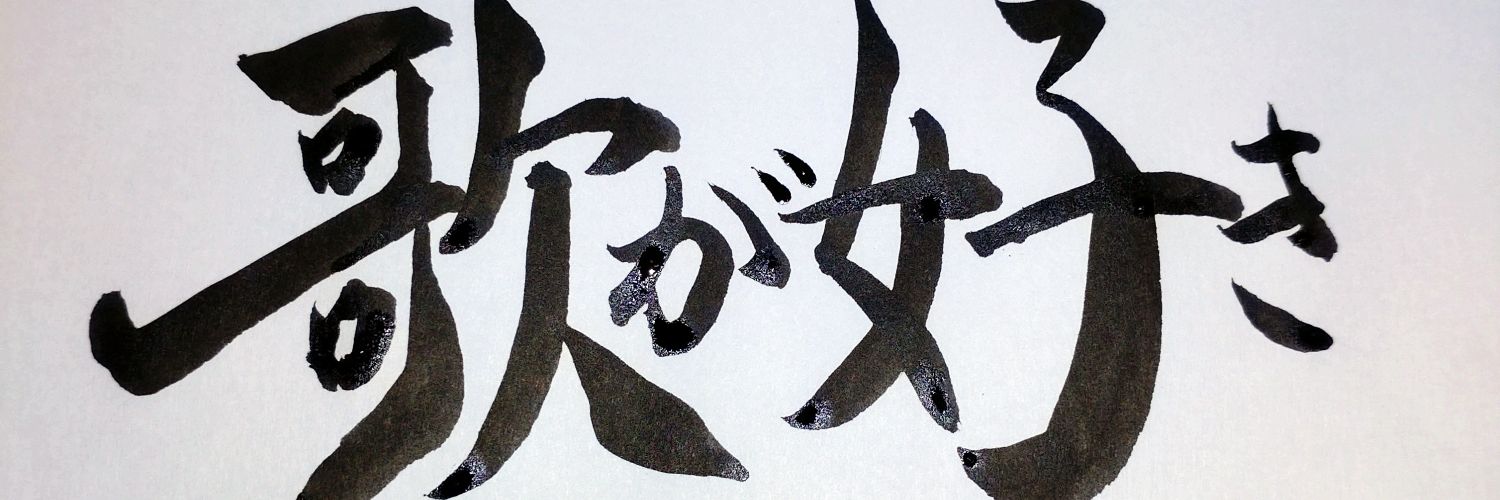 歌が好き